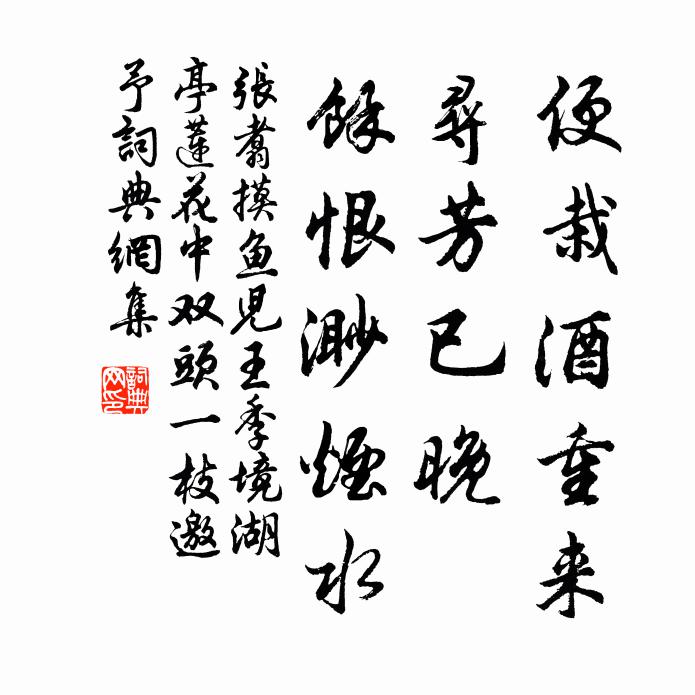 便栽酒重来
尋芳已晚
餘恨渺煙水
張翥摸鱼児王季境湖
亭蓮花中双頭一枝邀
予詞典網集
詞典
网印